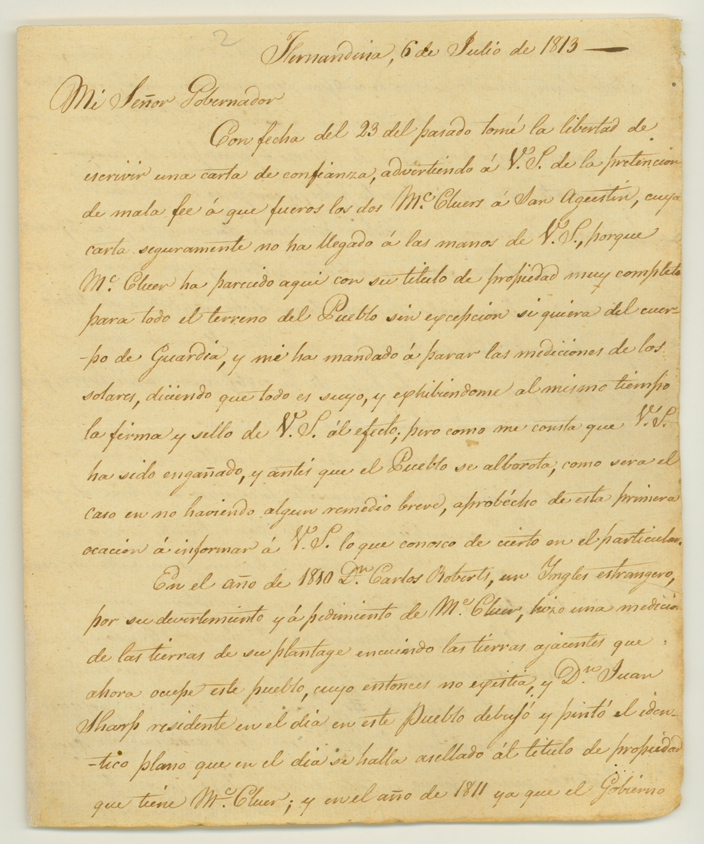 2
Fernandina, 6 de Julio de 1813 —
Mi Señor Gobernador
Con fecha del 23 del pasado tomé la libertad de
escrivir una carta de confianza, advertiendo á V.S. de la pretencion
de mala fee á que fueros los dos Mc. Cluers á San Agustin, cuya
carta seguramente no ha llegado á las manos de V.S., porque
Mc. Cluer ha parecido aqui con su titulo de propiedad muy completo
para todo el terreno del Pueblo sin excepcion si quiera del cuer-
-po de Guardia, y me ha mandado á parar las mediciones de los
solares, diciendo que todo es suyo, y exhibiendome al mismo tiempo
la firma y sello de V.S. ál efecto, pero como me consta que V.S.
ha sido engañado, y antés que el Pueblo se alborota, como sera el
caso en no haviendo algun remedio breve, aprobécho de esta primera
ocacion á informar á V.S. lo que conosco de cierto en el particular.
En el año de 1810 Dn. Carlos Roberts, un Ingles estrangero,
por su devertemiento y á pedimiento de Mc. Cluer, hizo una medicion
de las tierras de su plantage encuiendo las tierras ajacentes que
ahora ocupe este pueblo, cuyo entonces no existia, y Dn. Juan
Sharp residente en el dia en este Pueblo debujó y pintó el iden-
-tico plano que en el dia se halla asellado ál titulo de propiedad
que tiene Mc. Cluer; y en el año de 1811 ya que el Gobierno